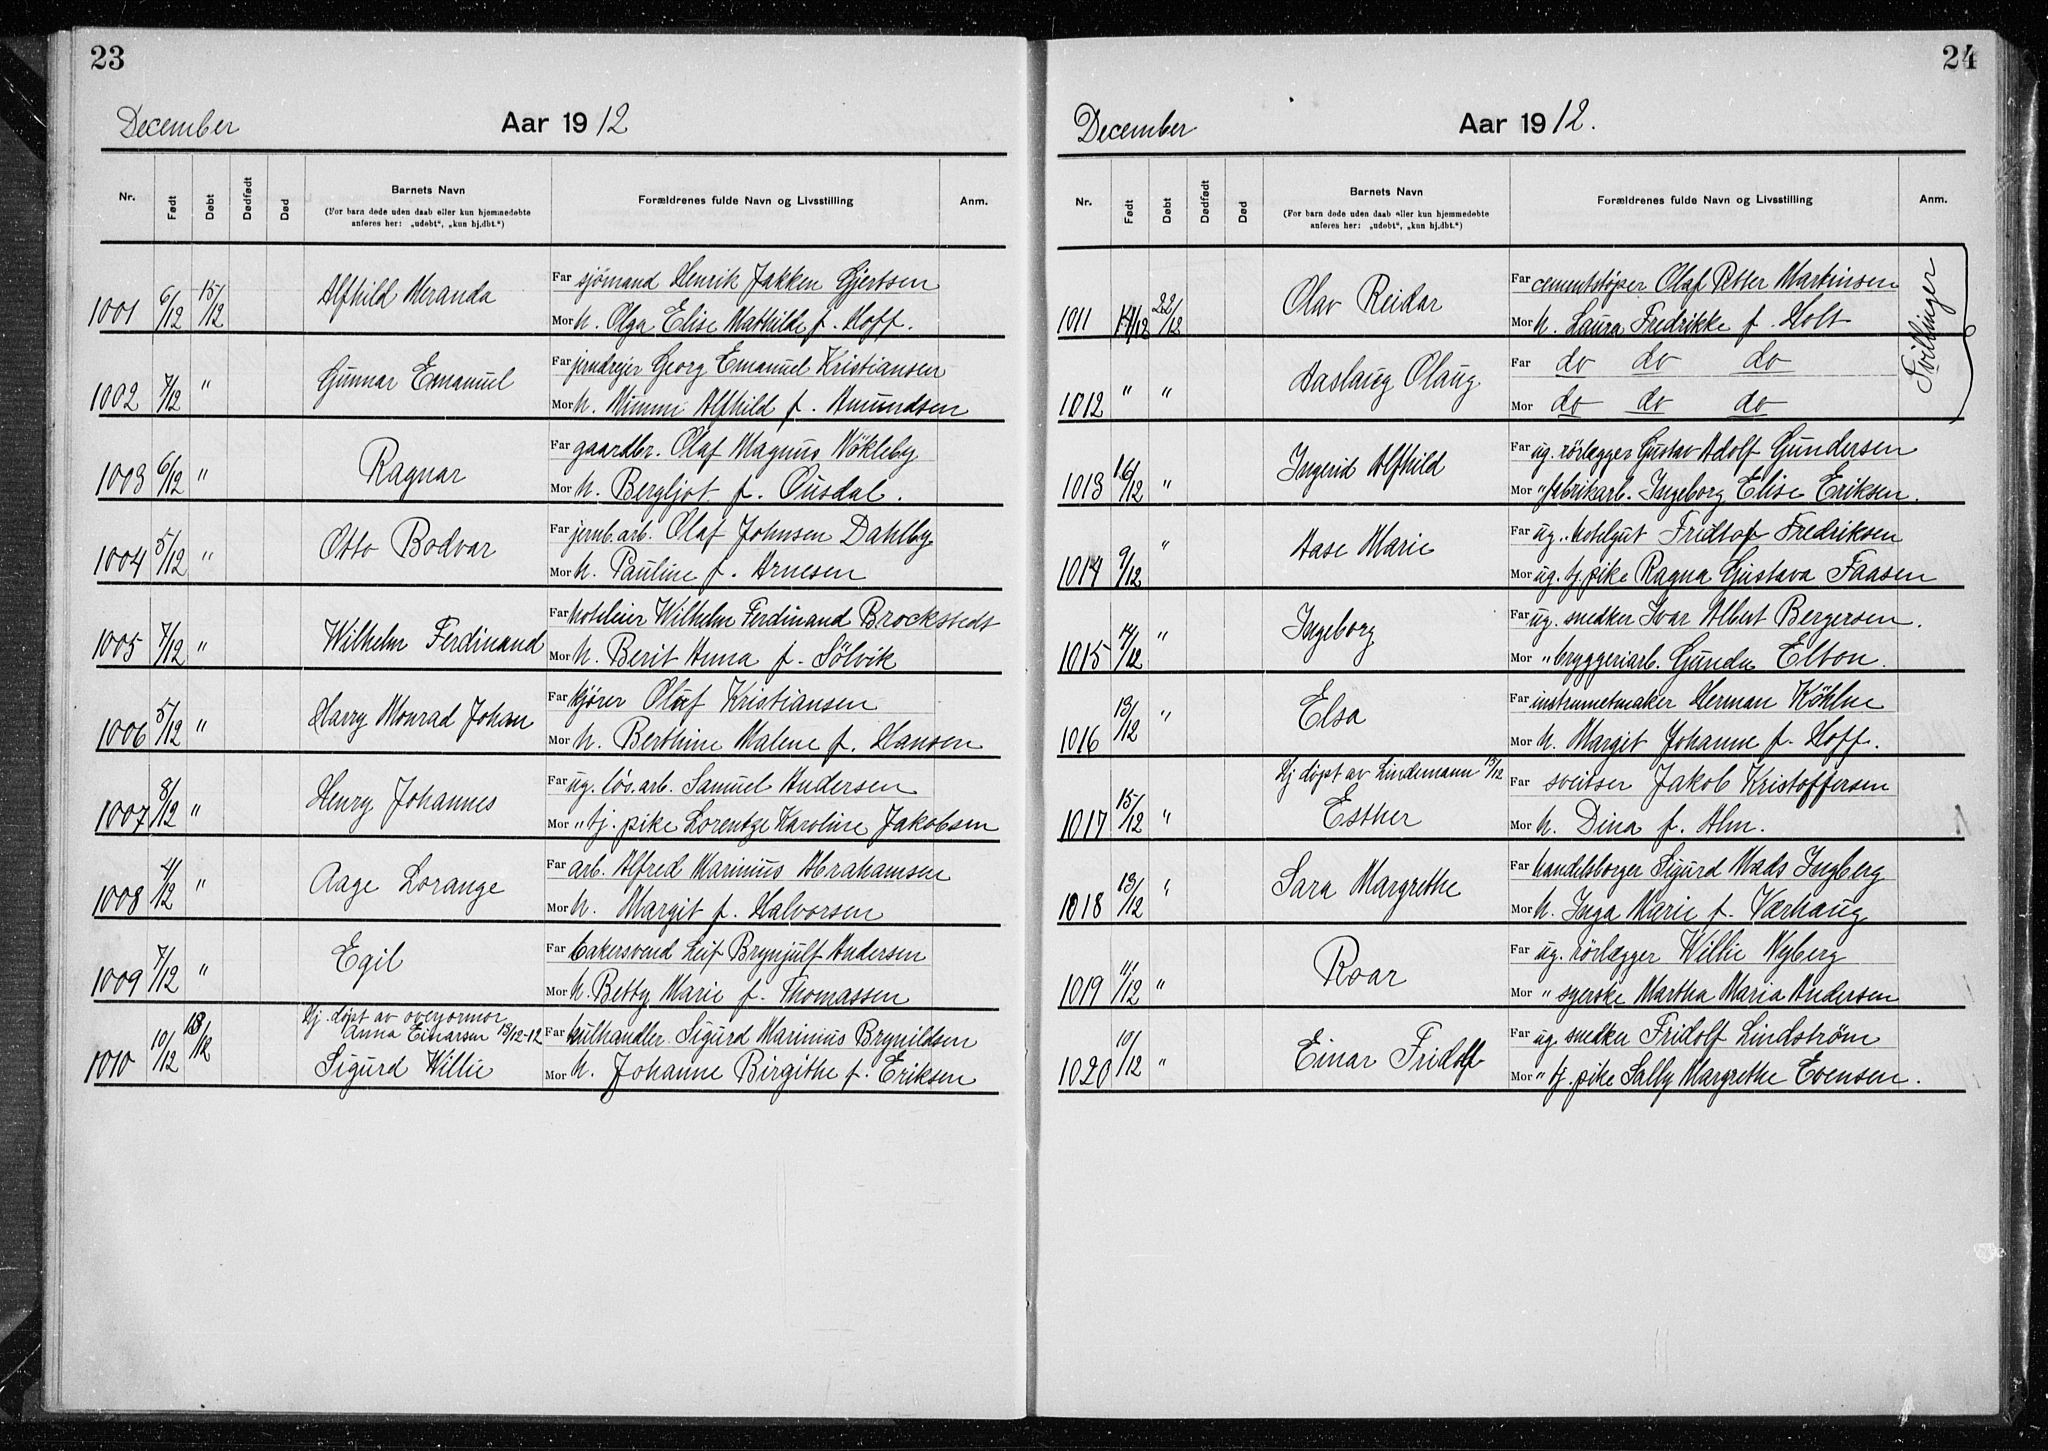 23
December Aar 1912
Nr. Født Døbt Dødfødt Død Barnets Navn Forældrenes fulde Navn og Livsstilling Anm.
(For barn døde uden daab eller kun hjemmedøbte
anføres her: „udøbt“, „kun hj.dbt.“)
Far sjömand Henrik Jakken Gjertsen
1001 6/12 15/12 Alfhild Meranda
Mor h. Olga Elise Mathilde f. Hoff.
Far jerndrejer Georg Emanuel Kristiansen
1002 7/12 " Gunnar Emanuel
Mor h. Mimmi Alfhild f. Amundsen
Far gaardbr. Olaf Magnus Nökleby
1003 6/12 " Ragnar
Mor h. Bergljot f. Ousdal.
Far jernb.arb. Olaf Johnsen Dahlby
1004 5/12 " Otto Bodvar
Mor h. Pauline f. Arnesen
Far hoteleier Wilhelm Ferdinand Brockstedt
1005 7/12 " Wilhelm Ferdinand
Mor h. Berit Anna f. Sölvik
Far kjörer Olaf Kristiansen
1006 5/12 " Harry Monrad Johan
Mor h. Berthine Malene f. Hansen
Far ug. lös.arb. Samuel Andersen
1007 8/12 " Henry Johannes
Mor " tj. pike Lorentze Karoline Jakobsen
Far arb. Alfred Marinius Abrahamsen
1008 4/12 " Aage Lorange
Mor h. Margit f. Halvorsen
Far bakersvend Leif Brynjulf Andersen
1009 7/12 " Egil
Mor h. Betty Marie f. Thomassen
Hj. döpt av overjormor
Anna Einarsen 13/12-12
Far kulhandler Sigurd Marinius Brynildsen
1010 10/12 13/12 Sigurd Willie
Mor h. Johanne Birgithe f. Eriksen
24
December Aar 1912.
Nr. Født Døbt Dødfødt Død Barnets Navn Forældrenes fulde Navn og Livsstilling Anm.
(For barn døde uden daab eller kun hjemmedøbte
anføres her: „udøbt“, „kun hj.dbt.“)
Far cementstøper Olaf Petter Martinsen
1011 14/12 22/12 Olav Reidar
Mor h. Laura Fredrikke f. Holt
Tvillinger
Far do do do
1012 " " Aaslaug Olaug
Mor do do do
Far ug. rörlægger Gustav Adolf Gundersen
1013 16/12 " Ingerid Alfhild
Mor " fabrikarb. Ingeborg Elise Eriksen.
Far ug. hotelgut Fridtof Fredriksen
1014 9/12 " Aase Marie
Mor ug. tj. pike Ragna Gustava Faasen
Far ug. snedker Ivar Albert Bergersen.
1015 14/12 " Ingeborg
Mor " bryggeriarb. Gunda Elton.
Far instrumetmaker Herman Köhlne
1016 13/12 " Elsa
Mor h. Margit Johanne f. Hoff.
Hj döpt av Lindemann 15/12
Far sveitser Jakob Kristoffersen
1017 15/12 " Esther
Mor h. Dina f. Alm.
Far handelsborger Sigurd Mads Ingberg
1018 13/12 " Sara Margrethe
Mor h. Inga Marie f. Værhaug
Far ug. rörlægger Willie Nyberg
1019 11/12 " Roar
Mor " syerske Martha Maria Andersen
Far ug. snedker Fridolf Lindström
1020 10/12 " Einar Fridolf
Mor " tj. pike Sally Margrethe Evensen.